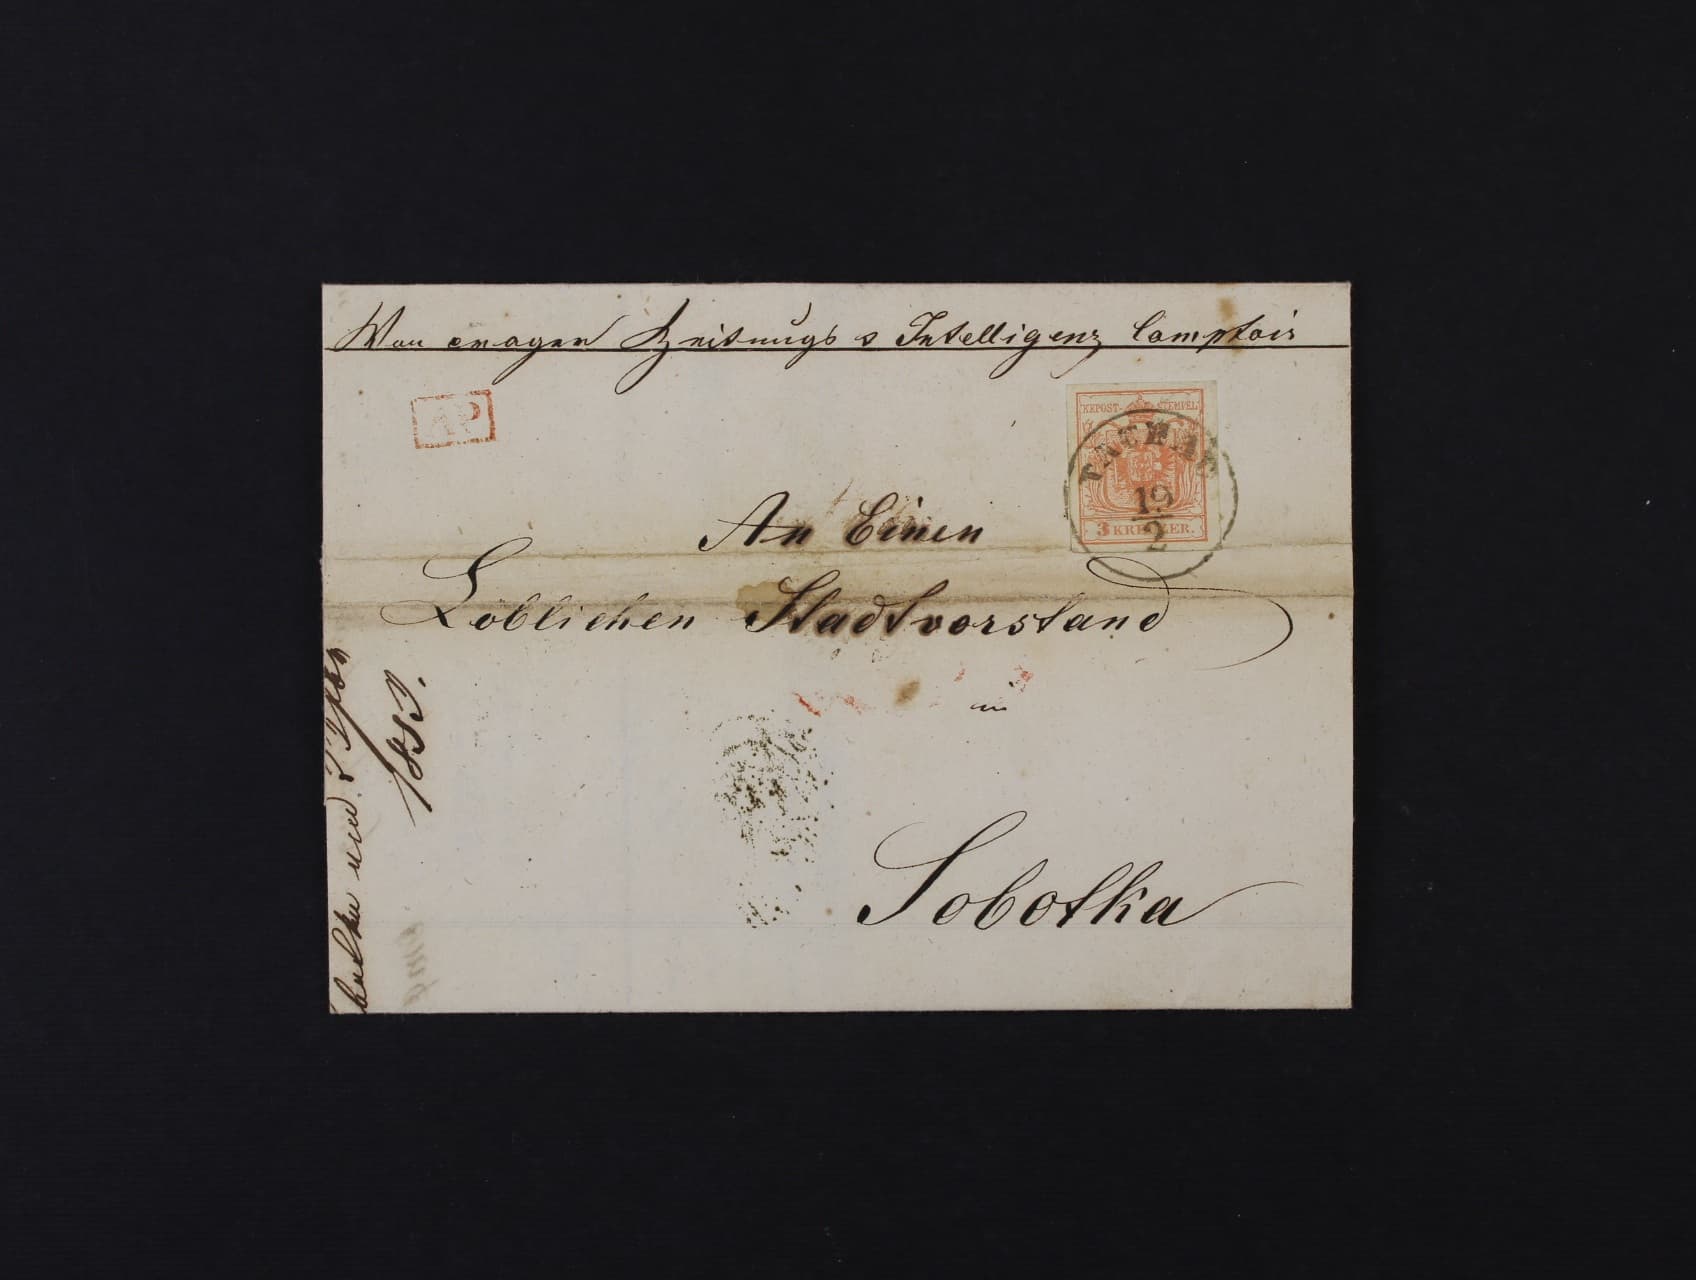 Von prager Zeitungs s Intelligenz Comptoir
AP
KKPOST-STEMPEL
19
2
3 KREUZER.
An Einen
Löblichen Stadtvorstand
in
Sobotka
1853.